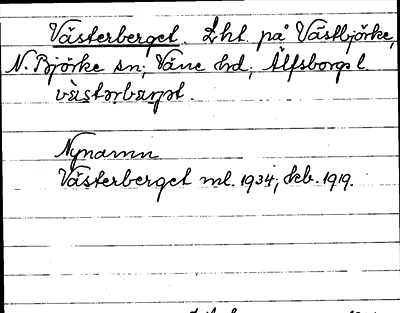 Västerberget. Lht. på Västbjörke,
N. Björke sn; Väne hd, Älfsborgs l.
Nynamn
Västerberget ml. 1934; kb. 1919.